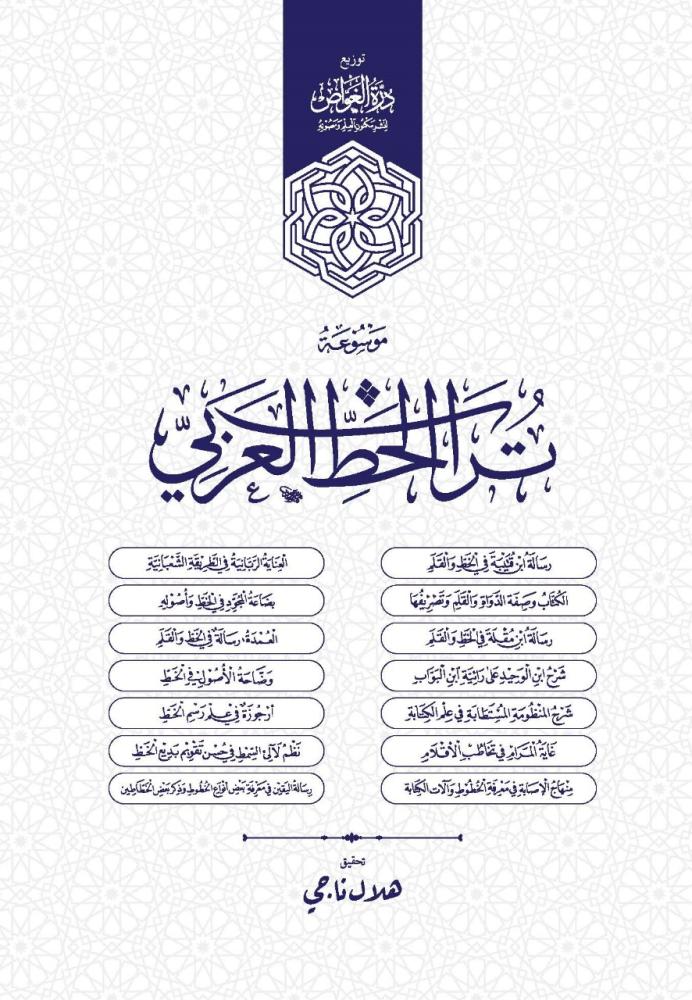 توزيع
دُرَّةُ الغَوَّاص
لِنَشْرِ مَكْنُونِ الْعِلْمِ وَمَصُونِهِ
مَوْسُوعَةُ
تُرَاثِ الخَطِّ العَرَبِيِّ
رِسَالَةُ ابْنِ قُتَيْبَةَ فِي الْخَطِّ وَالْقَلَمِ
الكُتَّابُ وَصِفَةُ الدَّوَاةِ وَالْقَلَمِ وَتَصْرِيفُهَا
رِسَالَةُ ابْنِ مُقْلَةَ فِي الْخَطِّ وَالْقَلَمِ
شَرْحُ ابْنِ الْوَحِيدِ عَلَى رَائِيَّةِ ابْنِ الْبَوَّابِ
شَرْحُ المَنْظُومَةِ المُسْتَطَابَةِ فِي عِلْمِ الكِتَابَةِ
غَايَةُ الْمَرَامِ فِي تَخَاطُبِ الْأَقْلَامِ
مِنْهَاجُ الْإِصَابَةِ فِي مَعْرِفَةِ الْخُطُوطِ وَآلَاتِ الْكِتَابَةِ
الْعِنَايَةُ الرَّبَّانِيَّةُ فِي الطَّرِيقَةِ الشَّعْبَانِيَّةِ
بِضَاعَةُ الْمُجَوِّدِ فِي الْخَطِّ وَأُصُولِهِ
الْعُمْدَةُ، رِسَالَةٌ فِي الْخَطِّ وَالْقَلَمِ
وَضَّاحَةُ الْأُصُولِ فِي الْخَطِّ
أُرْجُوزَةٌ فِي عِلْمِ رَسْمِ الْخَطِّ
نَظْمُ لَآلِئِ السِّمْطِ فِي حُسْنِ تَقْوِيمِ بَدِيعِ الْخَطِّ
رِسَالَةُ الْيَقِينِ فِي مَعْرِفَةِ بَعْضِ أَنْوَاعِ الْخُطُوطِ وَذِكْرِ بَعْضِ الْخَطَّاطِينَ
تحقيق
هلال ناجي